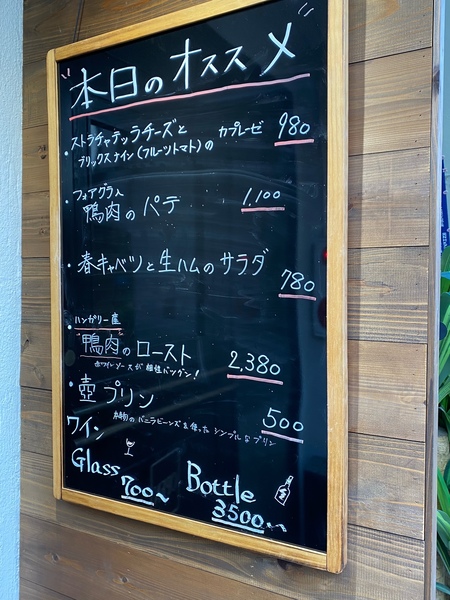 本日のオススメ
ストラチャテッラチーズと
ブリックスナイン(フルーツトマト)の カプレーゼ 980
フォアグラ入
鴨肉のパテ 1,100
春キャベツと生ハムのサラダ
780
ハンガリー産
"鴨肉"のロースト 2,380
赤ワインソースが相性バツグン!
壺プリン
本物のバニラビーンズを使ったシンプルなプリン 500
ワイン
Glass 700〜
Bottle 3500〜